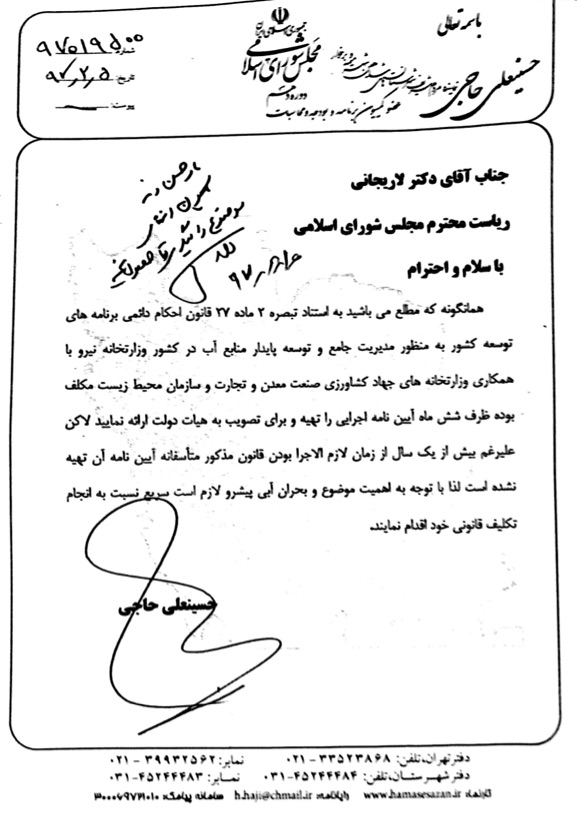 باسمه تعالی
جمهوری اسلامی ایران
مجلس شورای اسلامی
حسینعلی حاجی
عضو کمیسیون برنامه و بودجه و محاسبات
شماره
۹۷۰۱۹۵۰۰
تاریخ: ۹۷,۲,۵
پیوست:
جناب آقای دکتر لاریجانی
ریاست محترم مجلس شورای اسلامی
با سلام و احترام
همانگونه که مطلع می باشید به استناد تبصره ۲ ماده ۲۷ قانون احکام دائمی برنامه های
توسعه کشور به منظور مدیریت جامع و توسعه پایدار منابع آب در کشور وزارتخانه نیرو با
همکاری وزارتخانه های جهاد کشاورزی صنعت معدن و تجارت و سازمان محیط زیست مکلف
بوده ظرف شش ماه آیین نامه اجرایی را تهیه و برای تصویب به هیات دولت ارائه نمایید لاکن
علیرغم بیش از یک سال از زمان لازم الاجرا بودن قانون مذکور متأسفانه آیین نامه آن تهیه
نشده است لذا با توجه به اهمیت موضوع و بحران آبی پیشرو لازم است سریع نسبت به انجام
تکلیف قانونی خود اقدام نمایند.
حسینعلی حاجی
دفتر تهران، تلفن: ۳۳۵۲۳۸۶۸ - ۰۲۱ نمابر: ۳۹۹۳۲۵۶۲ - ۰۲۱
دفتر شهرستان، تلفن: ۴۵۲۴۴۴۸۴-۰۳۱ نمابر: ۴۵۲۴۴۴۸۳-۰۳۱
تارنما: www.hamasesazan.ir رایانامه: h.haji@chmail.ir سامانه پیامک: ۳۰۰۰۶۹۷۳۱۰۱۰